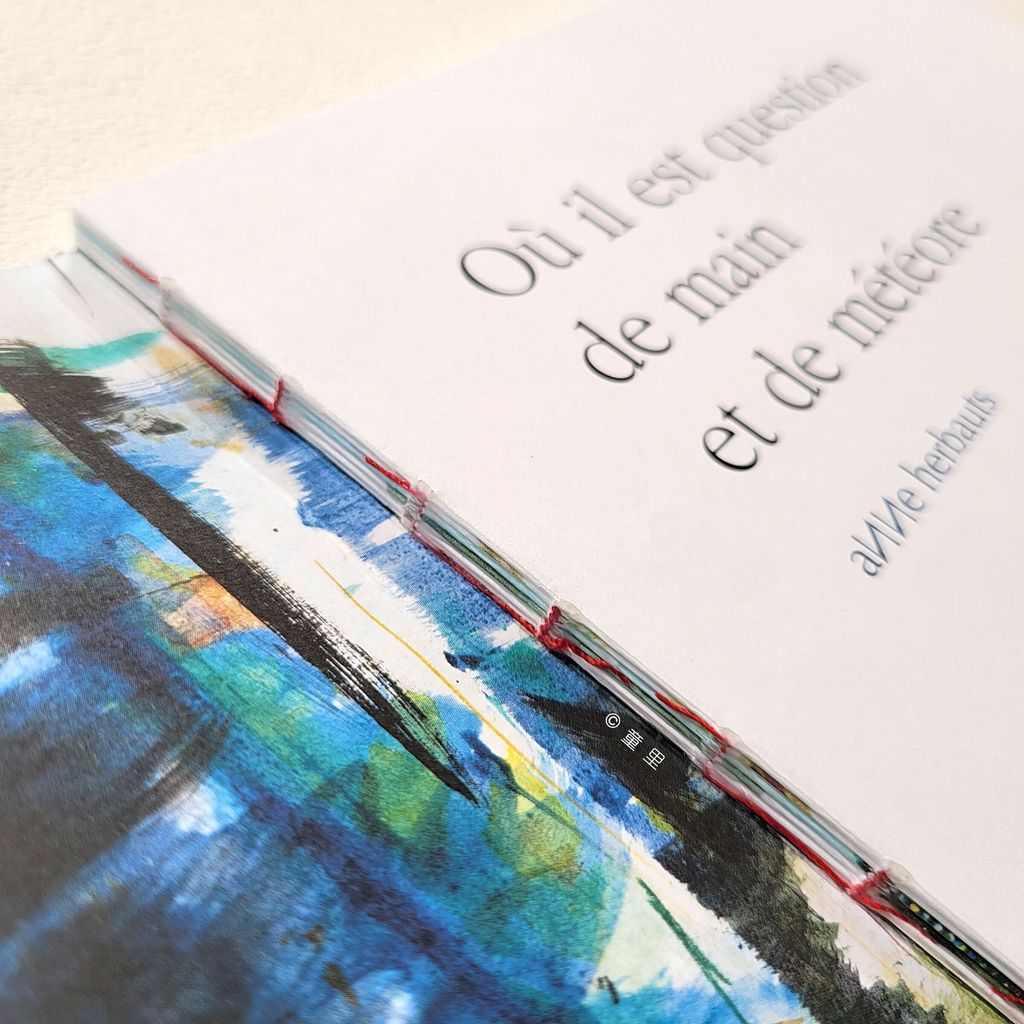 Où il est question
de main
et de météore
aNNe herbauts